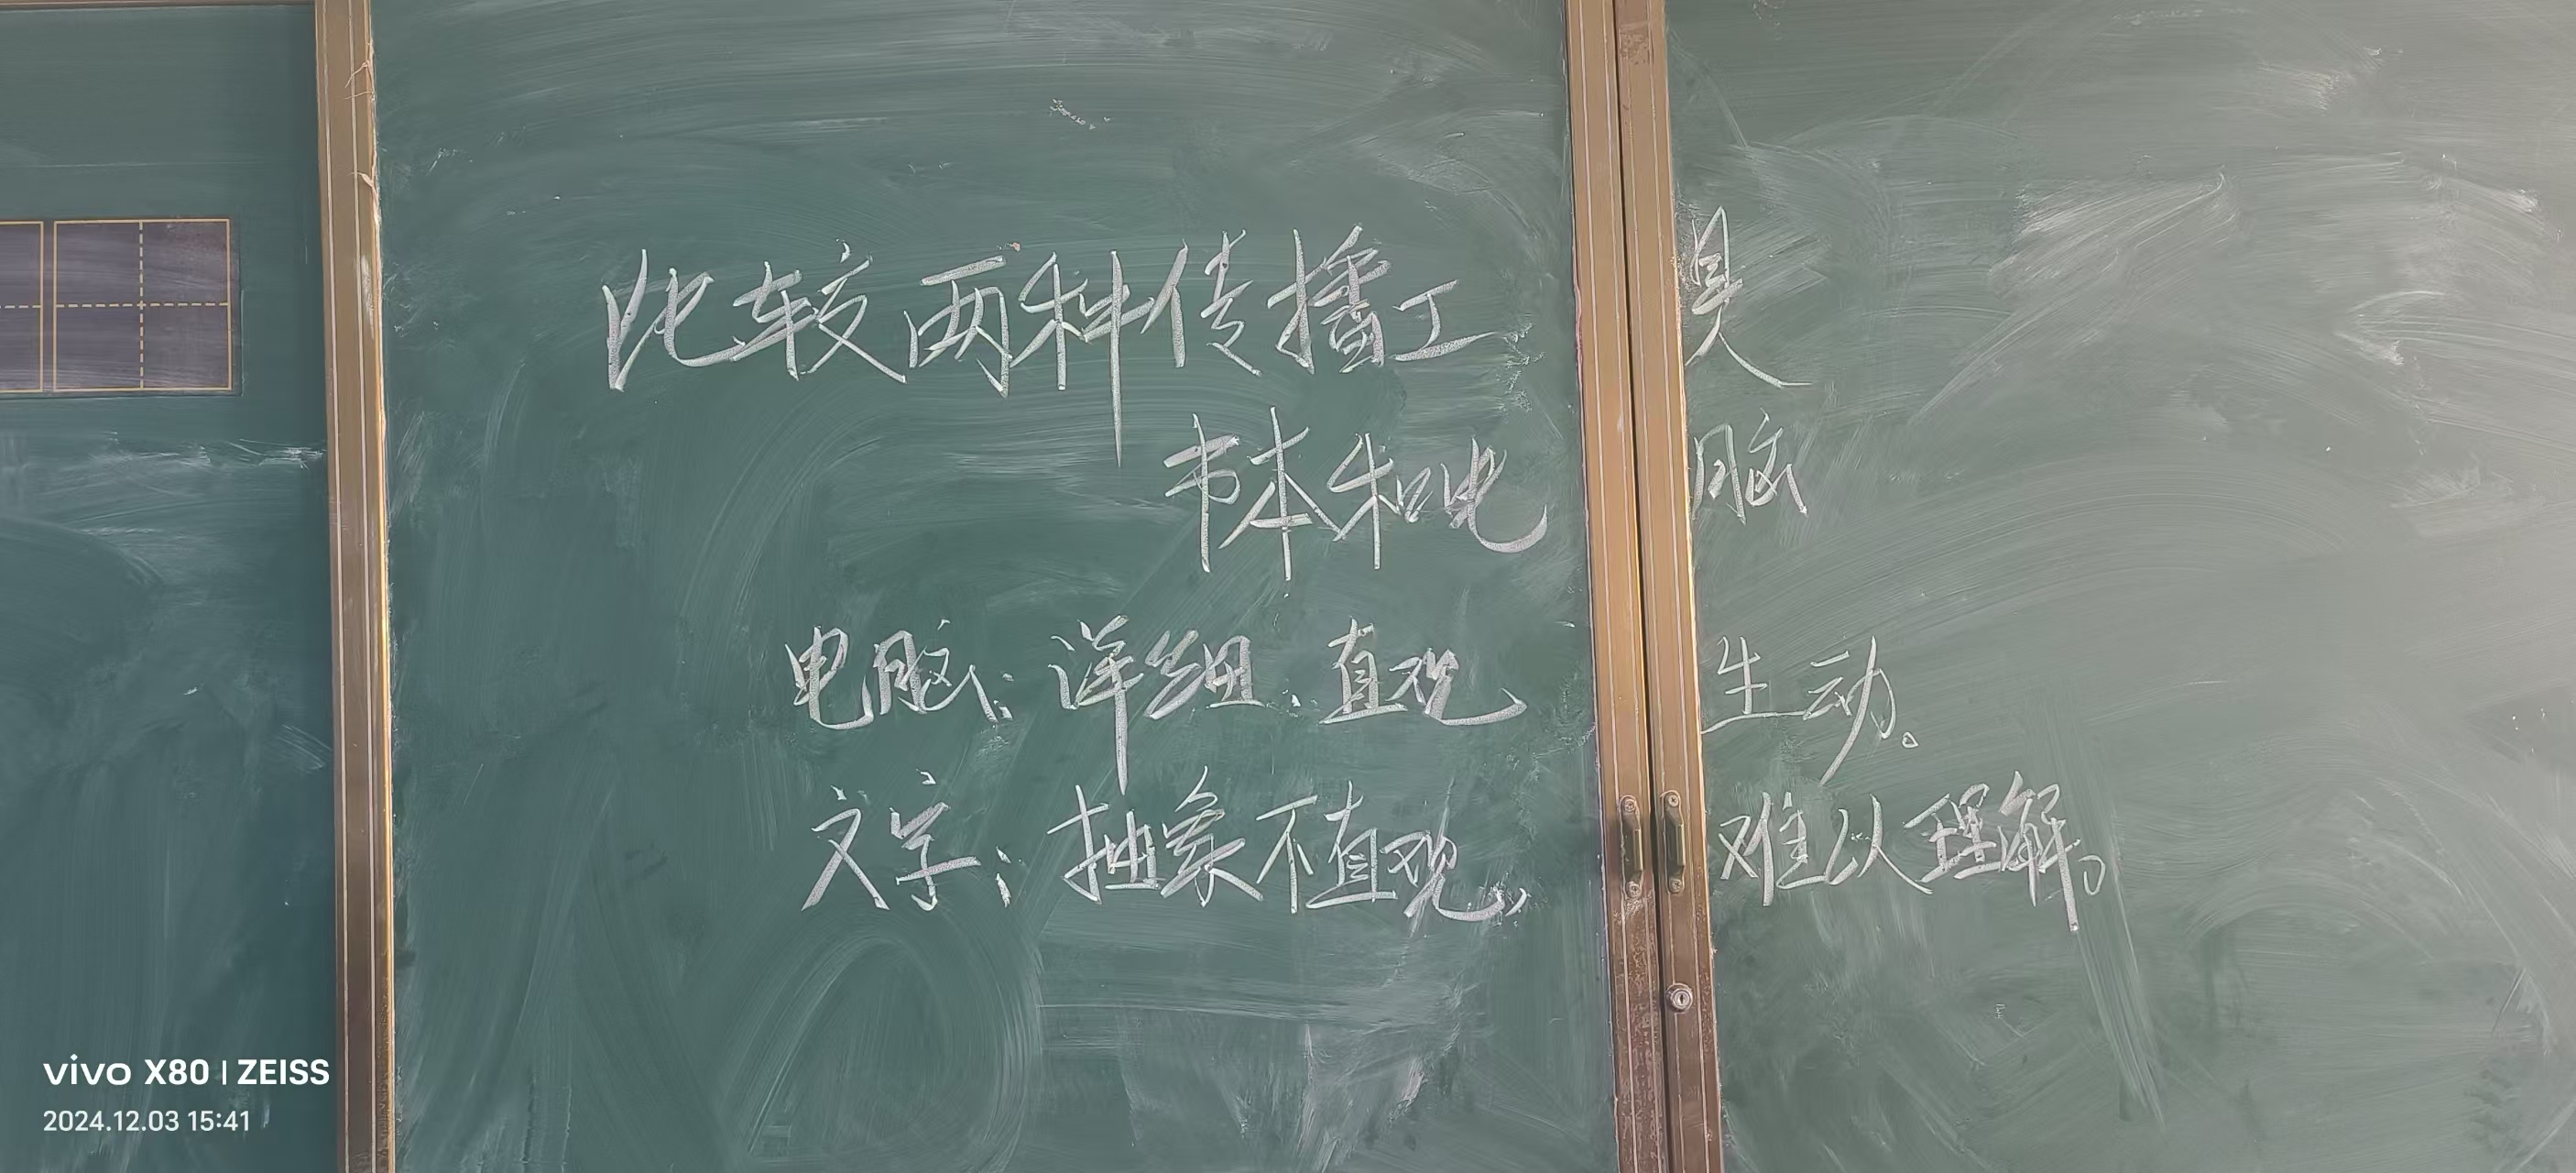 比较两种传播工具
书本和电脑
电脑：详细、直观生动。
文字：抽象不直观，难以理解。
vivo X80 | ZEISS
2024.12.03 15:41